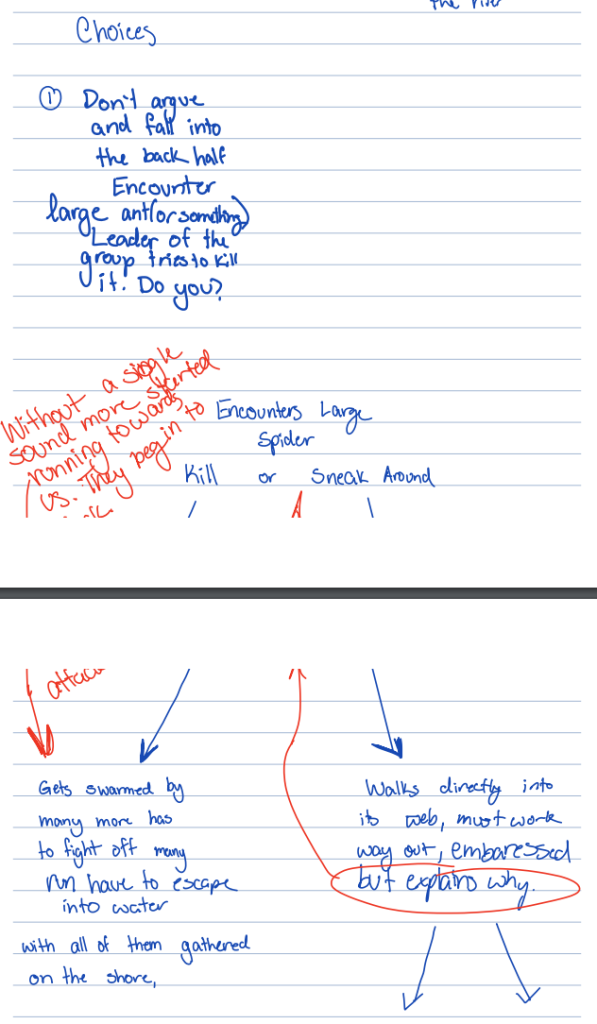 the river
Choices
① Don't argue
and fall into
the back half
Encounter
large ant (or something)
Leader of the
group tries to kill
it. Do you?
Without a single
sound more started
running towards
us. They begin to
Encounters Large
Spider
Kill or Sneak Around
attack
Gets swarmed by
many more has
to fight off many
run have to escape
into water
with all of them gathered
on the shore,
Walks directly into
its web, must work
way out, embaressed
but explains why.